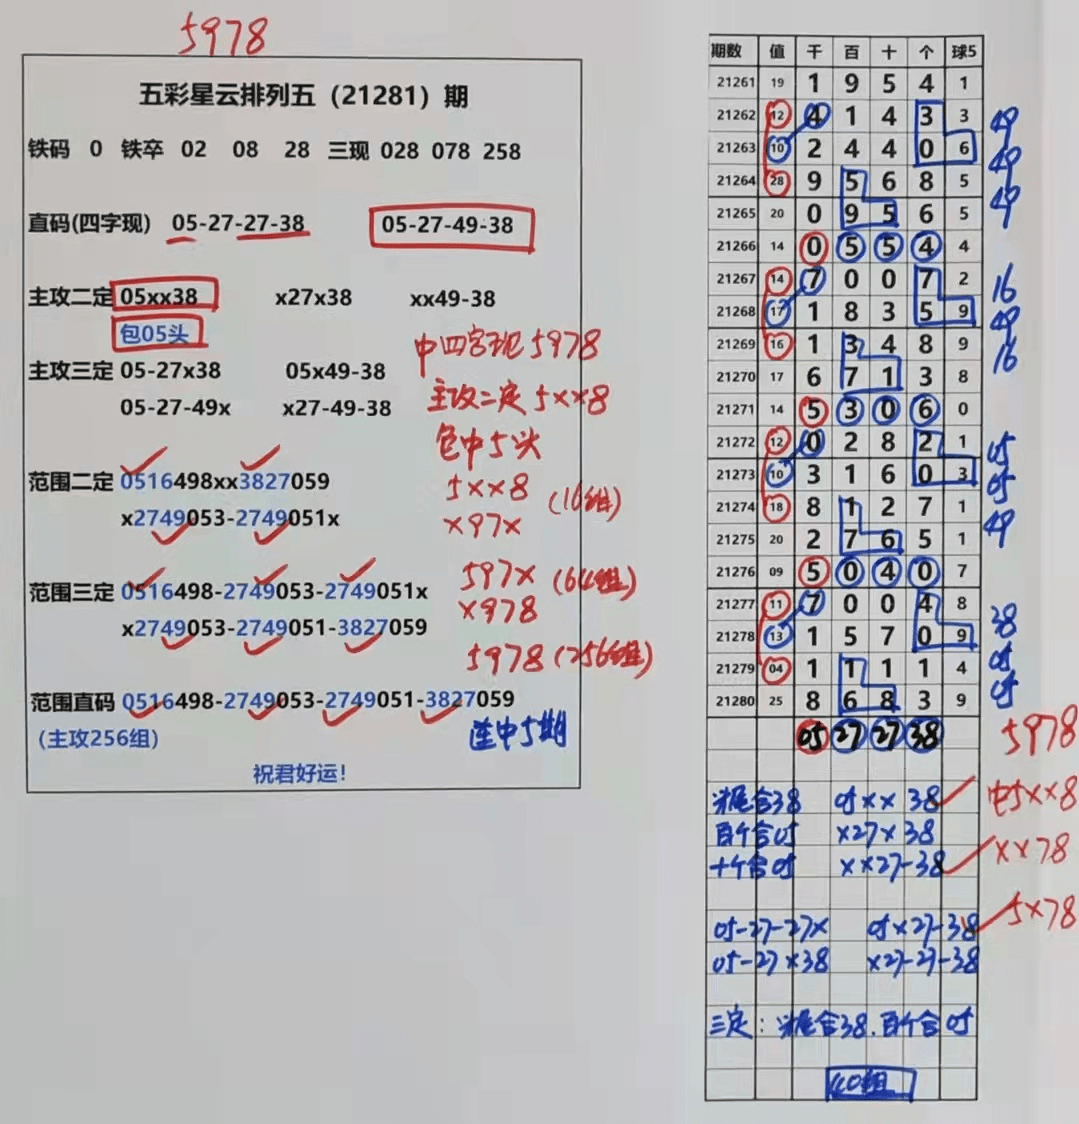 5978
五彩星云排列五（21281）期
铁码 0 铁卒 02 08 28 三现 028 078 258
直码(四字现) 05-27-27-38 05-27-49-38
主攻二定 05xx38 x27x38 xx49-38
包05头
中四字现5978
主攻三定 05-27x38 05x49-38
主攻二定5xx8
05-27-49x x27-49-38
包中5头
范围二定 0516498xx3827059
5xx8 (16组)
x2749053-2749051x
x97x
范围三定 0516498-2749053-2749051x
597x (64组)
x2749053-2749051-3827059
x978
5978 (256组)
范围直码 0516498-2749053-2749051-3827059
(主攻256组) 连中5期
祝君好运!
期数 值 千 百 十 个 球5
21261 19 1 9 5 4 1
21262 12 4 1 4 3 3 49
21263 10 2 4 4 0 6 49
21264 28 9 5 6 8 5 49
21265 20 0 9 5 6 5
21266 14 0 5 5 4 4
21267 14 7 0 0 7 2 16
21268 17 1 8 3 5 9 49
21269 16 1 3 4 8 9 16
21270 17 6 7 1 3 8
21271 14 5 3 0 6 0
21272 12 0 2 8 2 1 05
21273 10 3 1 6 0 3 05
21274 18 8 1 2 7 1 49
21275 20 2 7 6 5 1
21276 09 5 0 4 0 7
21277 11 7 0 0 4 8 38
21278 13 1 5 7 0 9
21279 04 1 1 1 1 4 05
21280 25 8 6 8 3 9 05
05 27 27 38 5978
头尾合38 05xx38 中5xx8
百个合05 x27x38
十个合05 xx27-38 xx78
05-27-27x 05x27-38 5x78
05-27x38 x27-27-38
三定：头尾合38.百个合05
40组